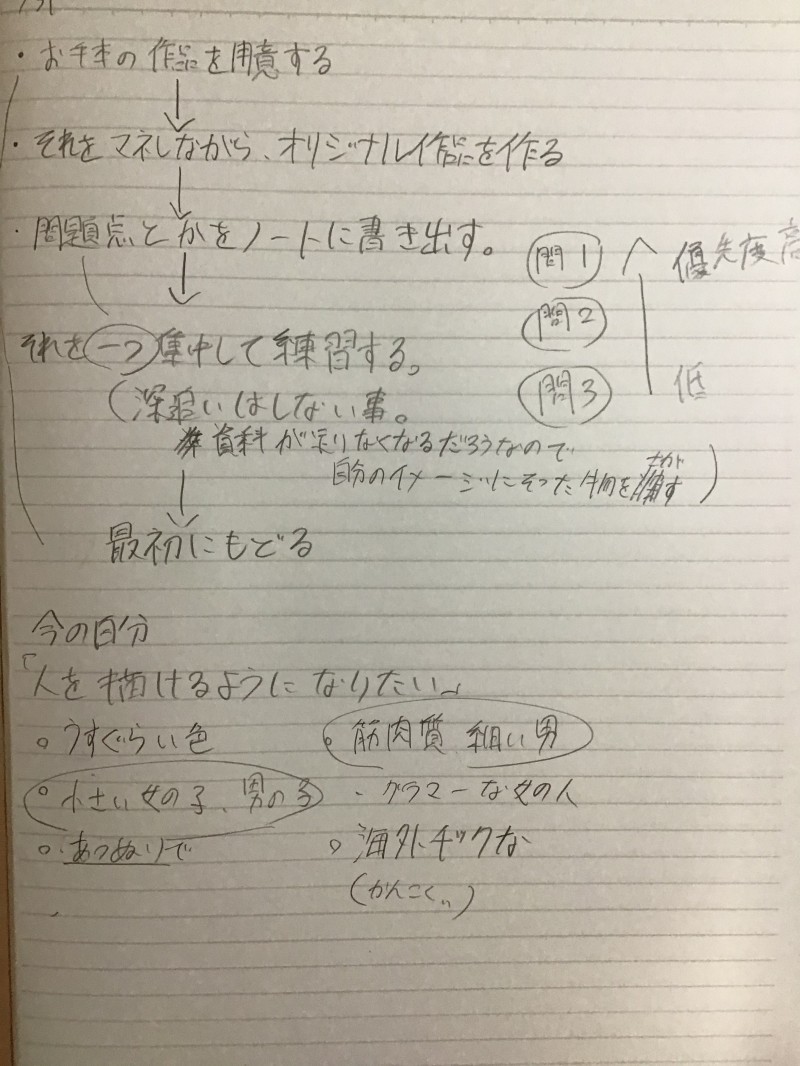 ・お手本の作品を用意する
↓
・それをマネしながら、オリジナル作品を作る
↓
・問題点とかをノートに書き出す。
問1 優先度高
↓
問2
それを一つ集中して練習する。
問3 低
(深追いはしない事。
資料が足りなくなるだろうなので
自分のイメージにそった物を さが す)
↓
最初にもどる
今の自分
「人を描けるようになりたい」
○ うすぐらい色 ○ 筋肉質 細い男
○ 小さい女の子、男の子 ・グラマーな女の人
○ あつぬりで ○ 海外チックな
(かんこく〃)